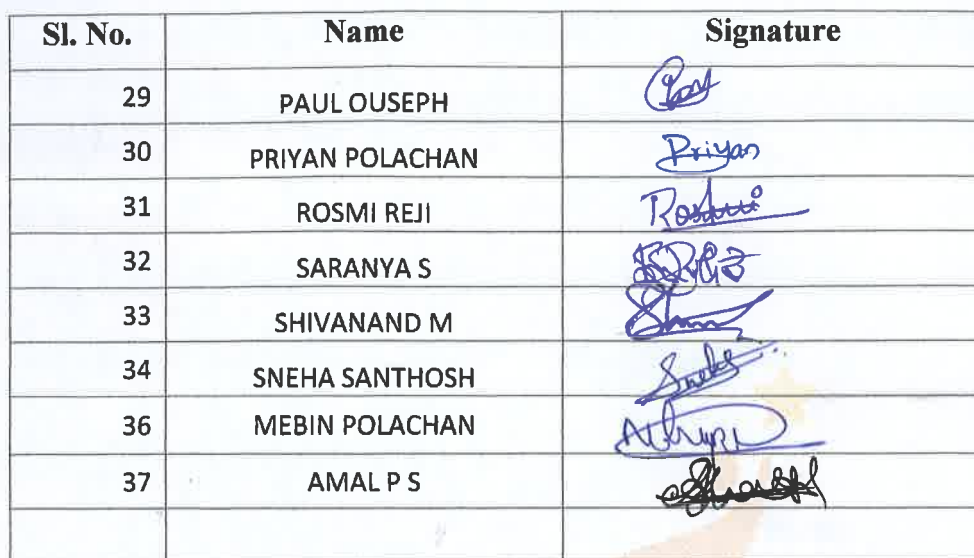 Sl. No. Name Signature
29 PAUL OUSEPH
30 PRIYAN POLACHAN Priyan
31 ROSMI REJI Rosmi
32 SARANYA S
33 SHIVANAND M
34 SNEHA SANTHOSH Sneha
36 MEBIN POLACHAN
37 AMAL P S